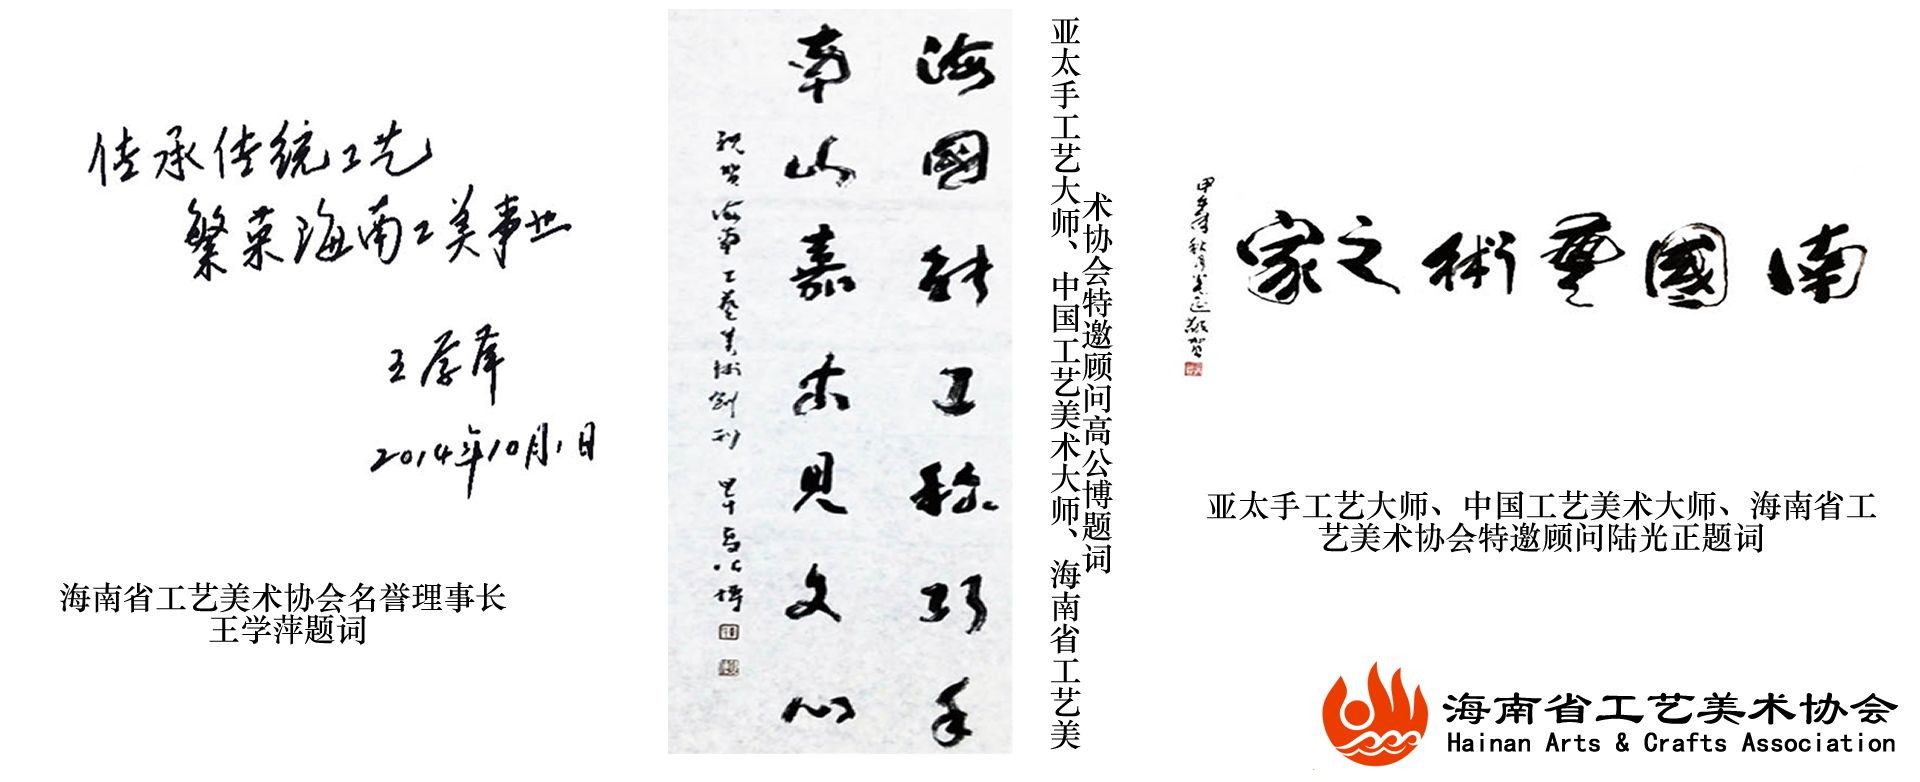 传承传统工艺
繁荣海南工美事业
王学萍
2014年10月1日
海南省工艺美术协会名誉理事长
王学萍题词
海國神工称巧手
南山嘉木见文心
祝贺海南工艺美术创刊
亚太手工艺大师、中国工艺美术大师、海南省工艺美
术协会特邀顾问高公博题词
南國藝術之家
亚太手工艺大师、中国工艺美术大师、海南省工
艺美术协会特邀顾问陆光正题词
海南省工艺美术协会
Hainan Arts & Crafts Association